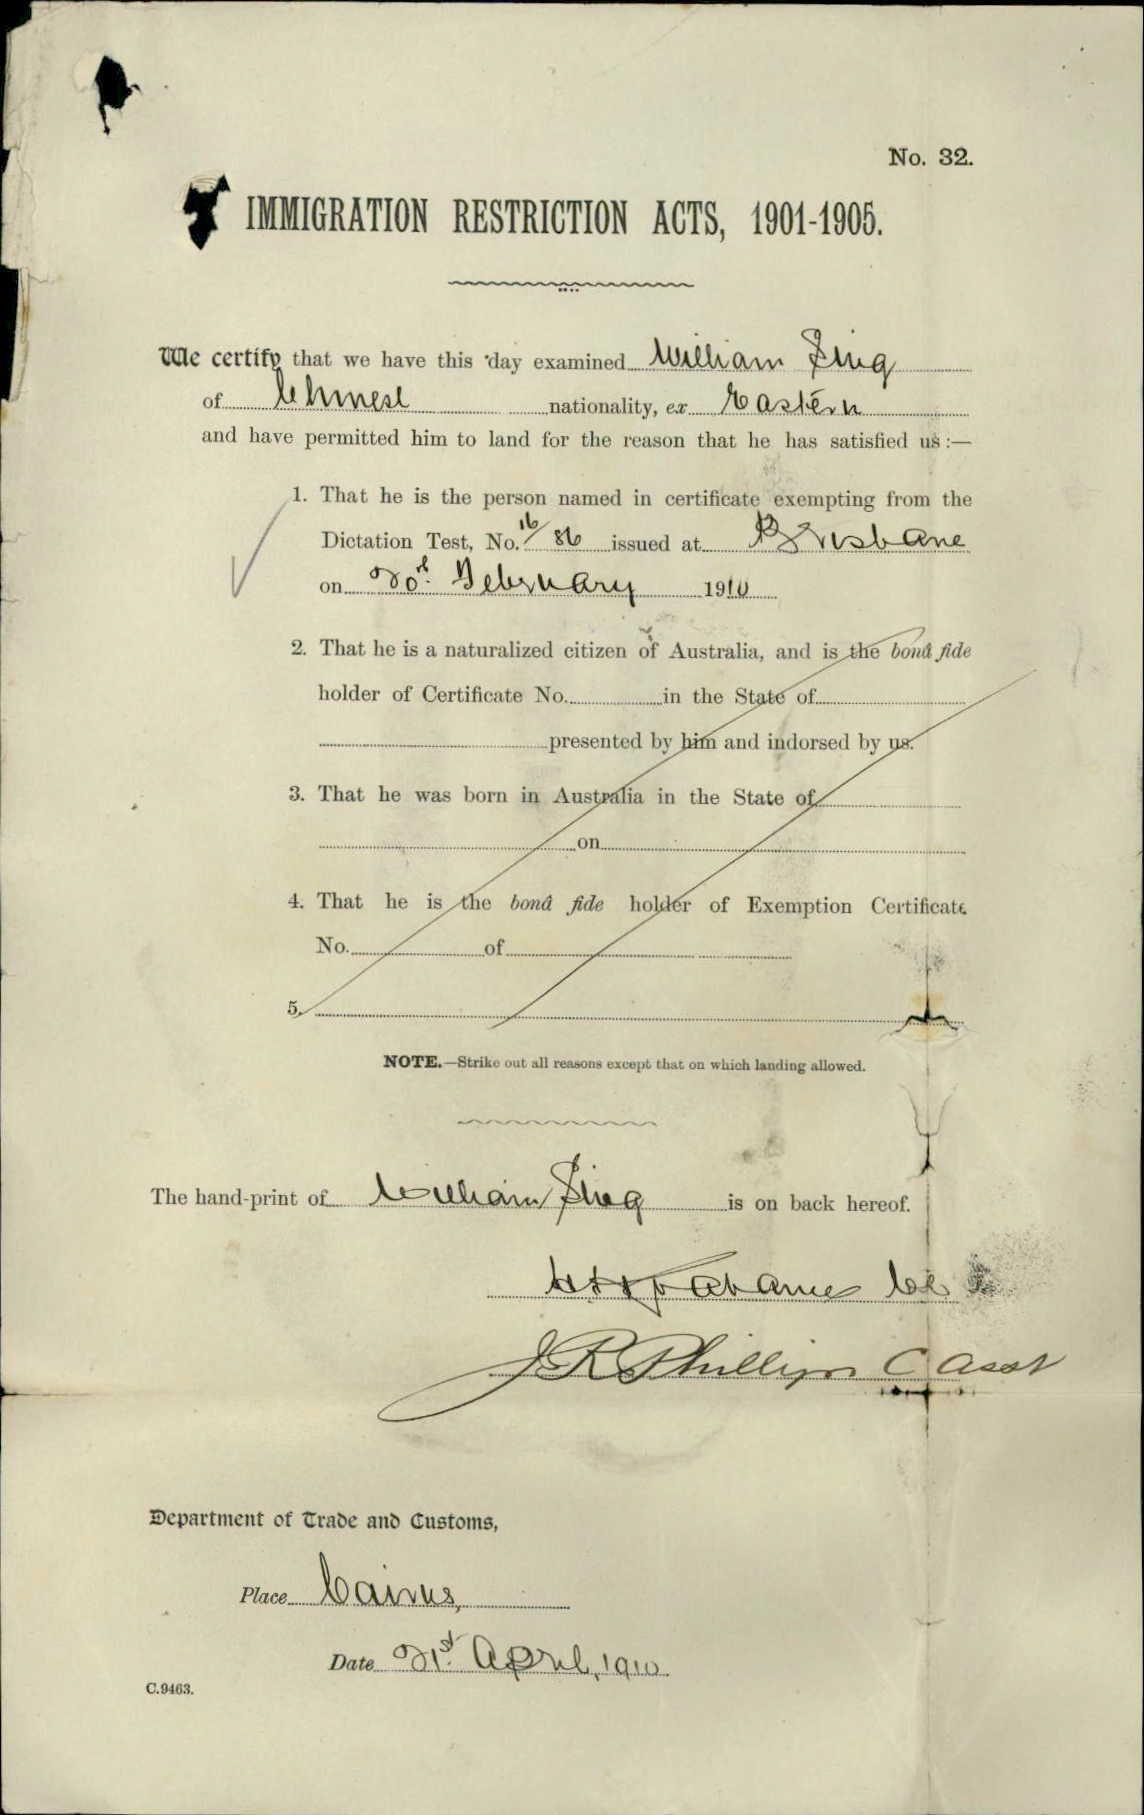 No. 32.
IMMIGRATION RESTRICTION ACTS, 1901-1905.
We certify that we have this day examined William Sing
of Chinese nationality, ex Eastern
and have permitted him to land for the reason that he has satisfied us:—
1. That he is the person named in certificate exempting from the
Dictation Test, No. 16/86 issued at Brisbane
on February 1910
2. That he is a naturalized citizen of Australia, and is the bonâ fide
holder of Certificate No. in the State of
presented by him and indorsed by us.
3. That he was born in Australia in the State of
on
4. That he is the bonâ fide holder of Exemption Certificate
No. of
5.
NOTE.—Strike out all reasons except that on which landing allowed.
The hand-print of William Sing is on back hereof.
J R Phillips C Asst
Department of Trade and Customs,
Place Cairns,
Date 21st April, 1910
C.9463.